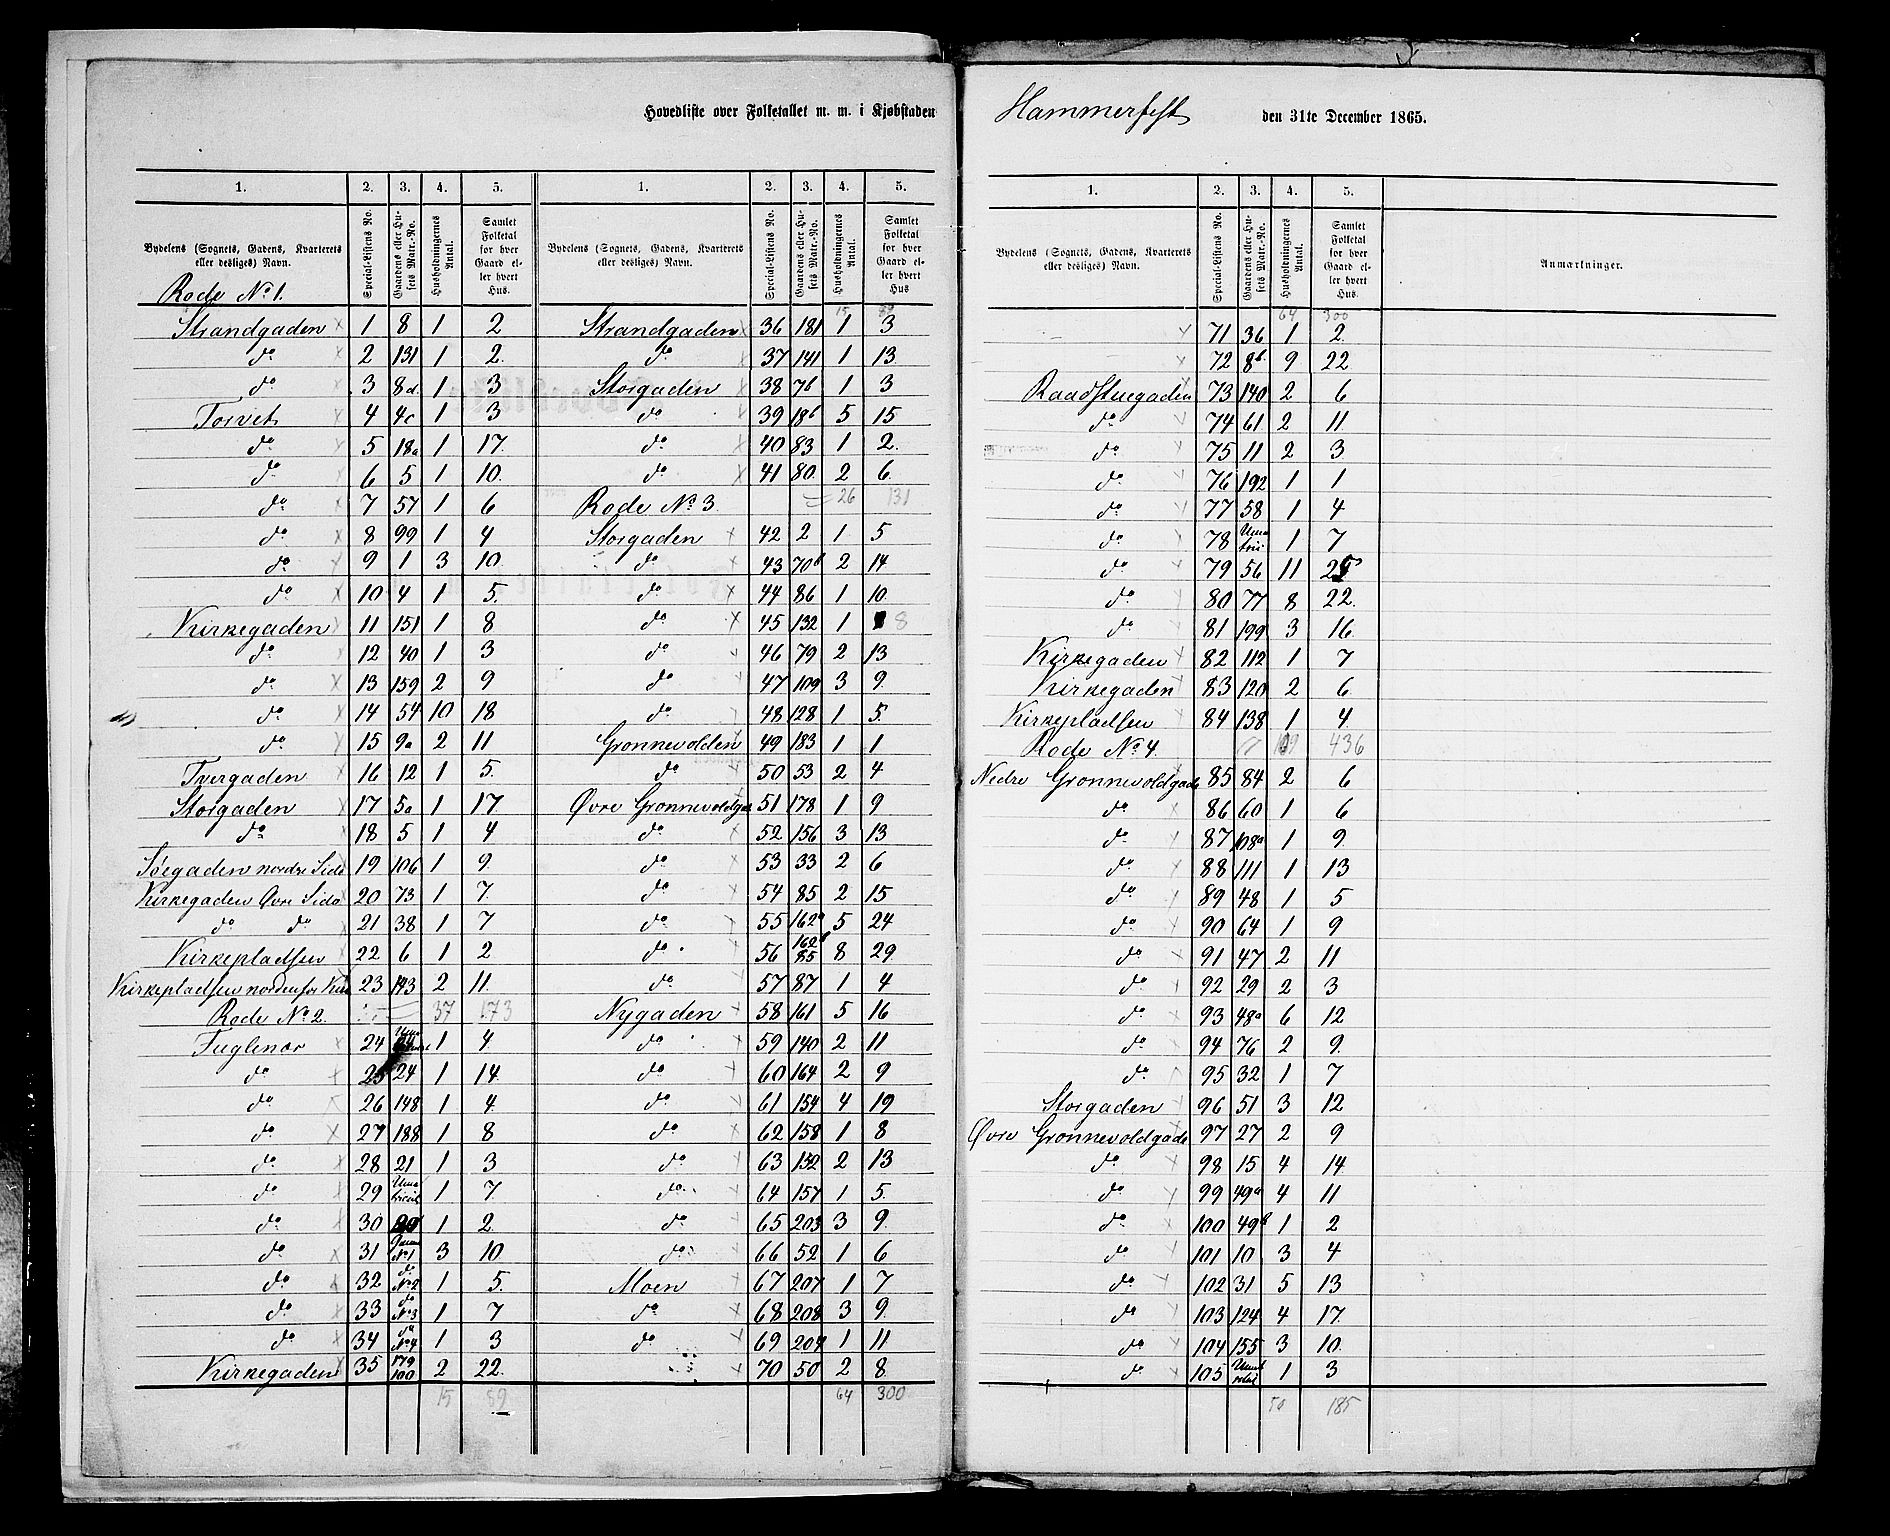 Hovedliste over Folketallet m. m. i Kjøbstaden Hammerfest den 31te December 1865.
1. 2. 3. 4. 5. 1. 2. 3. 4. 5.
Bydelens (Sognets, Gadens, Kvarterets eller desliges) Navn. Special-Listens No. Gaardens eller Husets Matr.-No. Husholdningernes Antal. Samlet Folketal for hver Gaard eller hvert Hus. Bydelens (Sognets, Gadens, Kvarterets eller desliges) Navn. Special-Listens No. Gaardens eller Husets Matr.-No. Husholdningernes Antal. Samlet Folketal for hver Gaard eller hvert Hus
Rode No 1.
Strandgaden 1 8 1 2
do 2 131 1 2.
do 3 8d 1 3
Torvet 4 4c 1 3
do 5 18a 1 17.
do 6 5 1 10.
do 7 57 1 6
do 8 99 1 4
do 9 1 3 10.
do 10 4 1 5.
Kirkegaden 11 151 1 8
do 12 40 1 3
do 13 159 2 9
do 14 54 10 18
do 15 9a 2 11
Tvergaden 16 12 1 5.
Storgaden 17 5a 1 17.
do 18 5 1 4
Søegaden nordre Side 19 106 1 9.
Kirkegaden Øvre Side 20 73 1 7.
do do 21 38 1 7
Kirkepladsen 22 6 1 2
Kirkepladsen nordenfor 23 143 2 11.
Rode No 2. 37 173
Fuglenær 24 1 4
do 25 24 1 14.
do 26 148 1 4.
do 27 188 1 8
do 28 21 1 3
do 29 1 7.
do 30 1 2.
do 31 No 1 3 10
do 32 do No 2 1 5.
do 33 do No 3 1 7
do 34 do No 4 1 3
Kirkegaden 35 179 100 2 22.
15 89
15 89
Strandgaden 36 181 1 3
do 37 141 1 13.
Storgaden 38 76 1 3
do 39 18b 5 15
do 40 83 1 2.
do 41 80 2 6.
Rode No 3. 26 131
Storgaden 42 2 1 5
do 43 70b 2 14
do 44 86 1 10.
do 45 132 1 8
do 46 79 2 13
do 47 109 3 9.
do 48 128 1 5.
Grønnevolden 49 183 1 1
do 50 53 2 4
Øvre Grønnevoldgade 51 178 1 9
do 52 156 3 13
do 53 33 2 6
do 54 85 2 15
do 55 162a 5 24
do 56 162b 85 8 29
do 57 87 1 4
Nygaden 58 161 5 16
do 59 140 2 11
do 60 164 2 9
do 61 154 4 19
do 62 158 1 8
do 63 152 2 13
do 64 157 1 5.
do 65 203 3 9.
do 66 52 1 6
Moen 67 207 1 7
do 68 208 3 9.
do 69 204 1 11
70 50 2 8
64 300
1. 2. 3. 4. 5.
Bydelens (Sognets, Gadens, Kvarterets eller desliges) Navn. Special-Listens No. Gaardens eller Husets Matr.-No. Husholdningernes Antal. Samlet Folketal for hver Gaard eller hvert Hus. Anmærkninger.
64 300
71 36 1 2.
72 8b. 9 22
Raadstuegaden 73 140 2 6
do 74 61 2 11
do 75 11 2 3
do 76 192 1 1
do 77 58 1 4
do 78 1 7
do 79 56 11 25
do 80 77 8 22.
do 81 199 3 16
Kirkegaden 82 112 1 7
Kirkegaden 83 120 2 6
Kirkepladsen 84 138 1 4.
Rode No 4. 109 436
Nedre Grønnevoldgade 85 84 2 6
do 86 60 1 6
do 87 108a 1 9.
do 88 111 1 13
do 89 48 1 5
do 90 64 1 9
do 91 47 2 11
do 92 29 2 3
do 93 48a 6 12
do 94 76 2 9.
do 95 32 1 7
Storgaden 96 51 3 12
Øvre Grønnevoldgade 97 27 2 9
do 98 15 4 14.
do 99 49a 4 11
do 100 49b 1 2
do 101 10 3 4
do 102 31 5 13
do 103 124 4 17.
do 104 155 3 10.
do 105 1 3
50 185